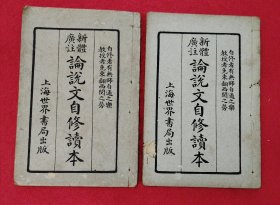 新體
廣註
論說文自修讀本
自修者有無師自通之樂
教授者免東翻西閱之勞
上海世界書局出版
新體
廣註
論說文自修讀本
自修者有無師自通之樂
教授者免東翻西閱之勞
上海世界書局出版